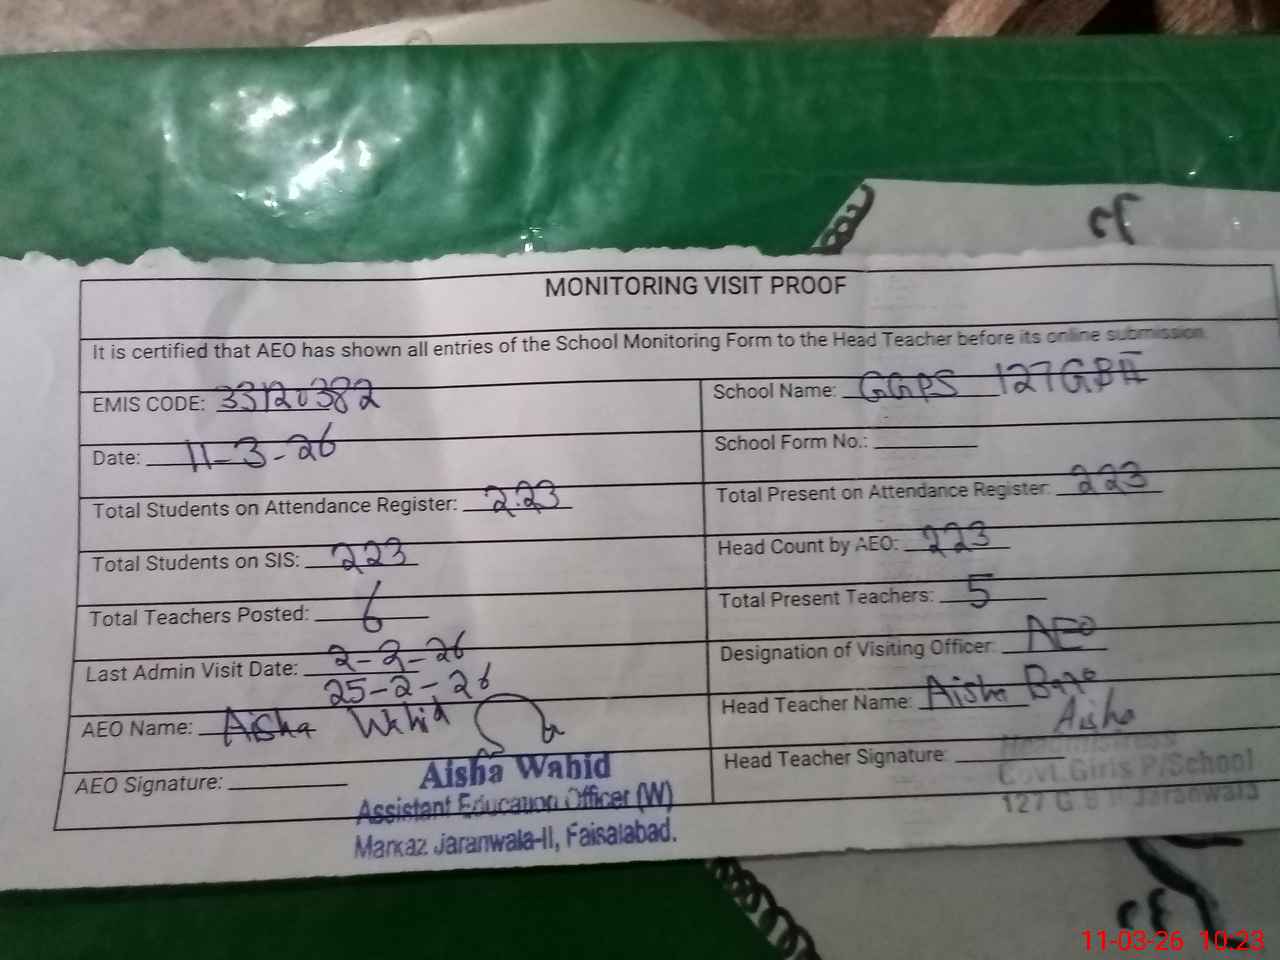 MONITORING VISIT PROOF
It is certified that AEO has shown all entries of the School Monitoring Form to the Head Teacher before its online submission.
EMIS CODE: 33120382
School Name: GGPS 127GBII
Date: 11-3-26
School Form No.:
Total Students on Attendance Register: 223
Total Present on Attendance Register: 223
Total Students on SIS: 223
Head Count by AEO: 223
Total Teachers Posted: 6
Total Present Teachers: 5
Last Admin Visit Date: 2-2-26
25-2-26
Designation of Visiting Officer: AEO
AEO Name: Aisha Wahid
Head Teacher Name: Aisha
Aisha
AEO Signature:
Head Teacher Signature:
Aisha Wahid
Assistant Education Officer (W)
Markaz Jaranwala-II, Faisalabad.
Headmistress
Govt. Girls P/School
127 G.B Jaranwala
11-03-26 10:23